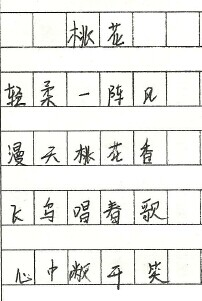 桃花
轻柔一阵风
漫天桃花香
飞鸟唱春歌
心中敞开笑